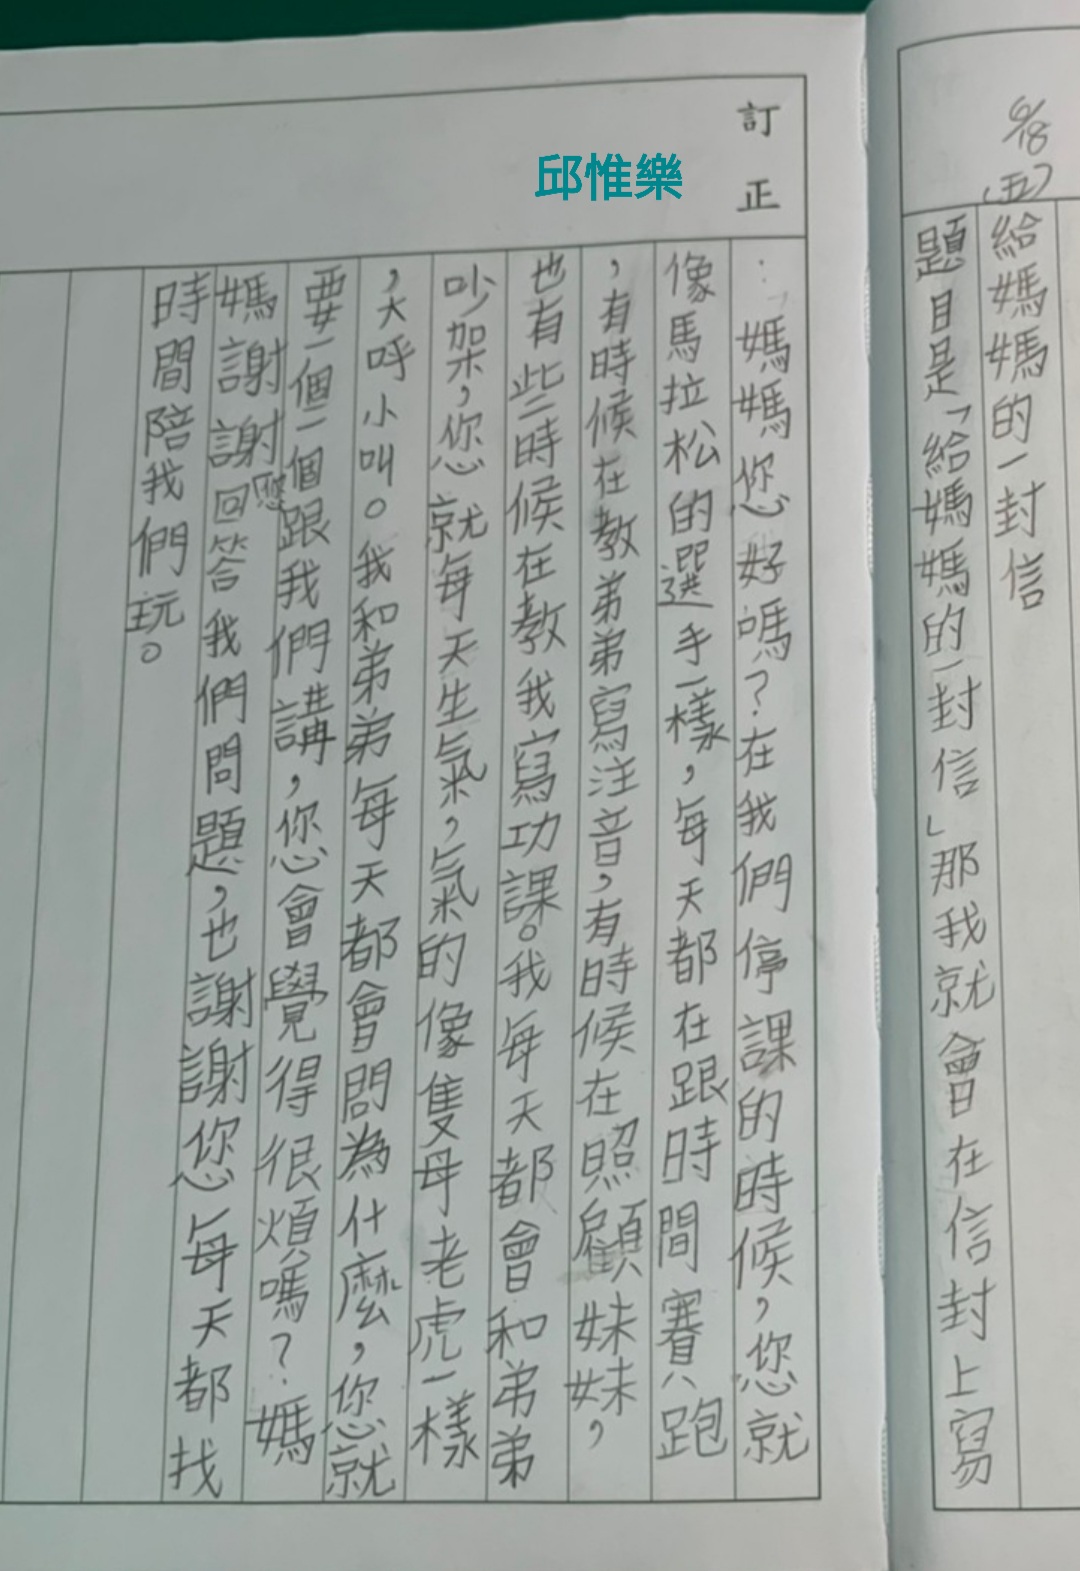 6/18
(五)
給媽媽的一封信
題目是「給媽媽的一封信」那我就會在信封上寫
訂正
邱惟樂
：「媽媽您好嗎？在我們停課的時候，您就
像馬拉松的選手一樣，每天都在跟時間賽跑
，有時候在教弟弟寫注音，有時候在照顧妹妹，
也有些時候在教我寫功課。我每天都會和弟弟
吵架，您就每天生氣，氣的像隻母老虎一樣
，大呼小叫。我和弟弟每天都會問為什麼，您就
要一個一個跟我們講，您會覺得很煩嗎？媽
媽謝謝您回答我們問題，也謝謝您每天都找
時間陪我們玩。